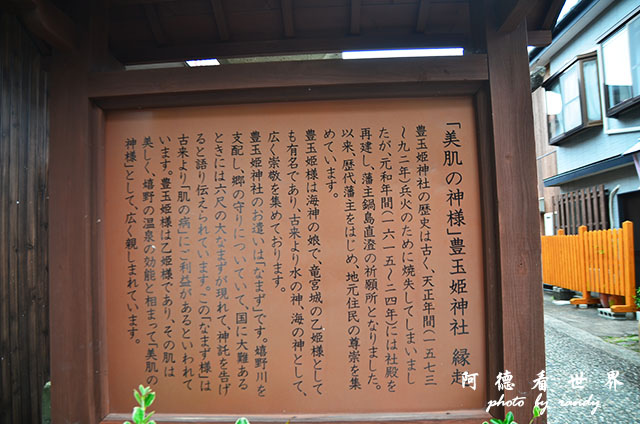 「美肌の神様」豊玉姫神社 縁起
豊玉姫神社の歴史は古く、天正年間(一五七三
〜九二年)兵火のために焼失してしまいまし
たが、元和年間(一六一五〜二四年)には社殿を
再建し、藩主鍋島直澄の祈願所となりました。
以来、歴代藩主をはじめ、地元住民の尊崇を集
めています。
豊玉姫様は海神の娘で、竜宮城の乙姫様として
も有名であり、古来より水の神、海の神として、
広く崇敬を集めております。
豊玉姫神社のお遣いは「なまず」です。嬉野川を
支配し、郷の守りについていて、国に大難ある
ときには六尺の大なまずが現れて、神託を告げ
ると語り伝えられています。この「なまず様」は
古来より「肌の病にご利益があるといわれて
います。豊玉姫様は乙姫様であり、その肌は
美しく、嬉野の温泉の効能と相まって「美肌の
神様」として、広く親しまれています。
阿德看世界
photo by randy